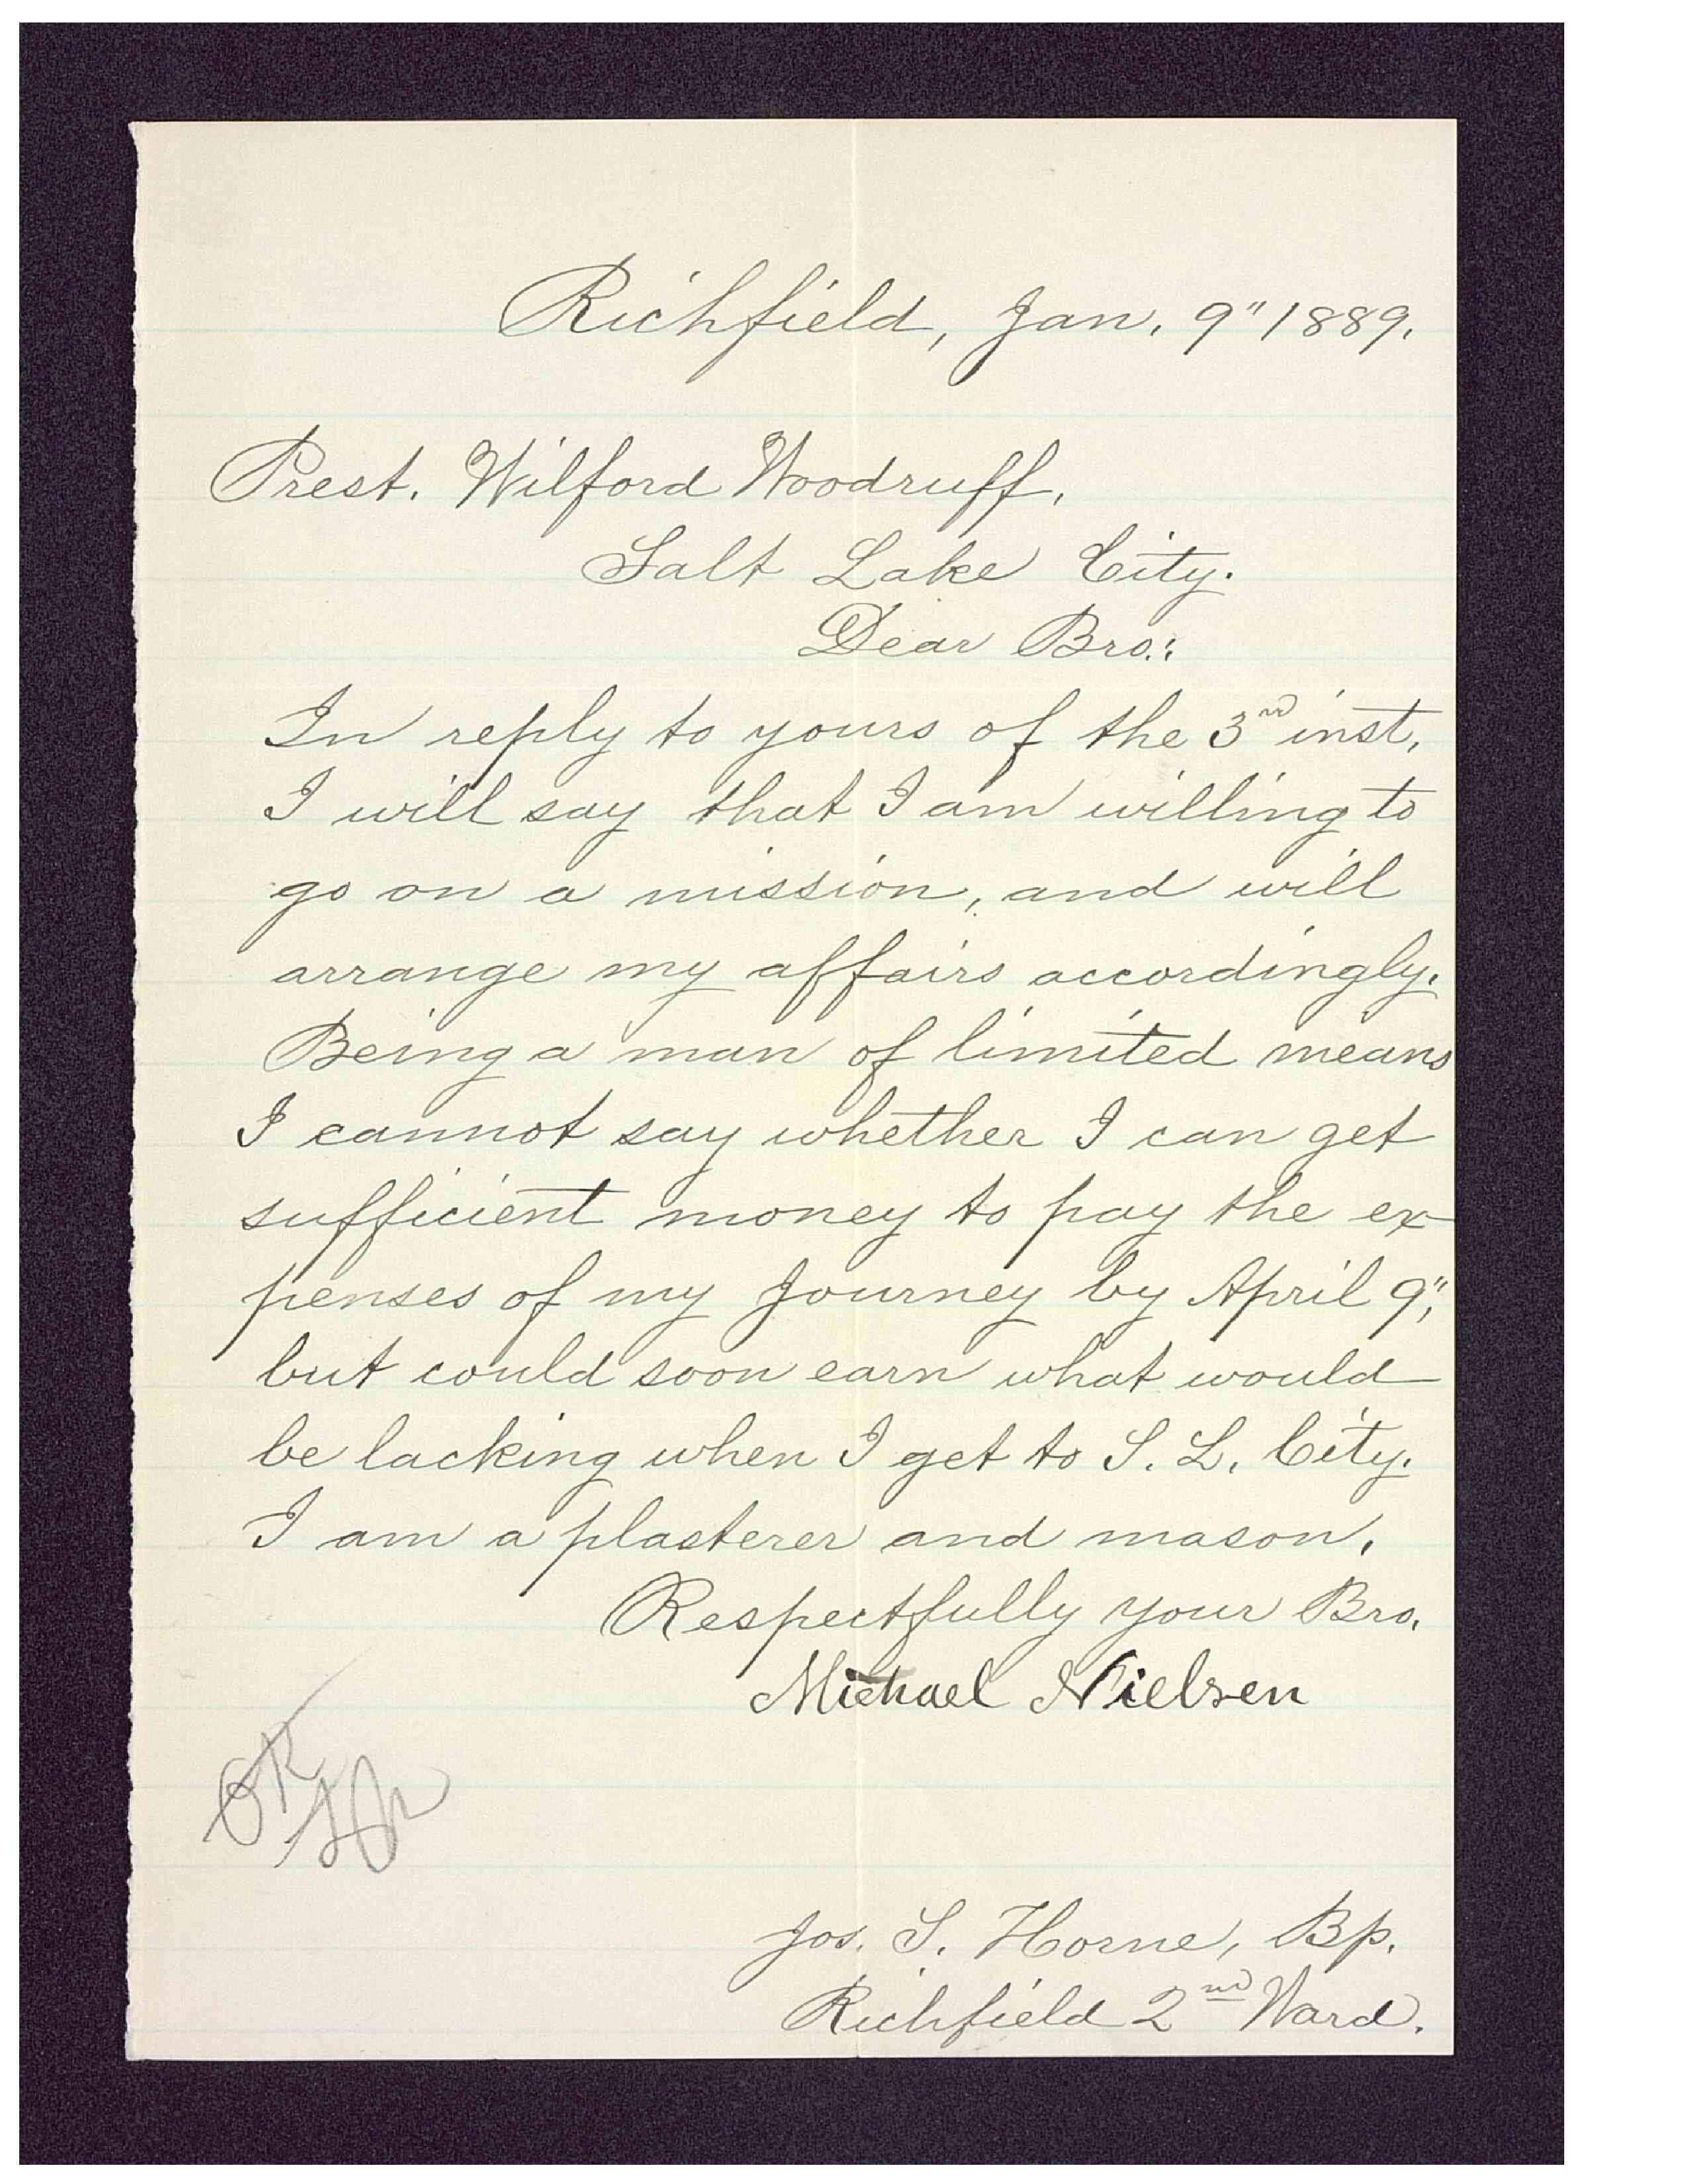 Richfield, Jan. 9" 1889.
Prest. Wilford Woodruff.
Salt Lake City.
Dear Bro.:
In reply to yours of the 3rd inst,
I will say that I am willing to
go on a mission, and will
arrange my affairs accordingly.
Being a man of limited means
I cannot say whether I can get
sufficient money to pay the ex-
penses of my journey by April 9",
but could soon earn what would
be lacking when I get to S. L. City.
I am a plasterer and mason.
Respectfully your Bro.
Michael Nielsen
OK
Jos. S. Horne, Bp.
Richfield 2nd Ward.